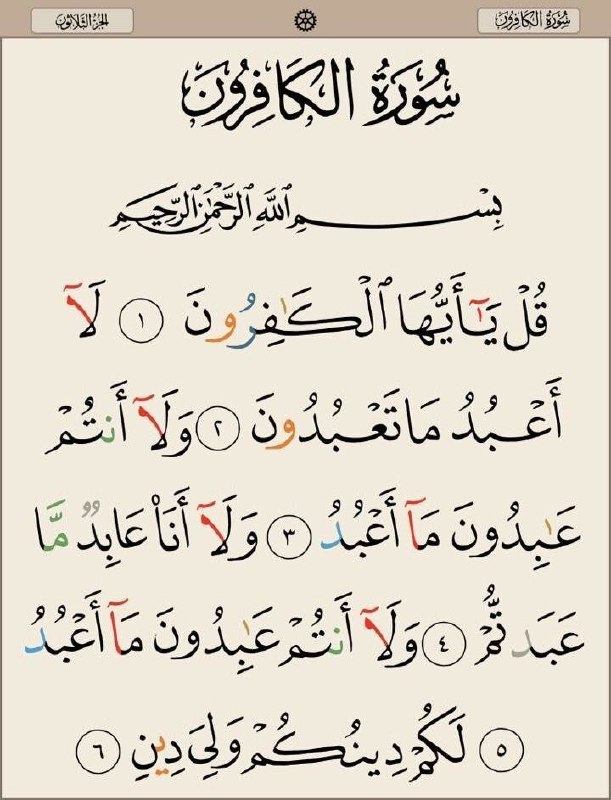 سُورَةُ الكَافِرُونَ
الجزء الثلاثون
سُورَةُ الكَافِرُونَ
بِسْمِ ٱللَّهِ ٱلرَّحْمَٰنِ ٱلرَّحِيمِ
قُلْ يَٰٓأَيُّهَا ٱلْكَٰفِرُونَ ١ لَآ
أَعْبُدُ مَا تَعْبُدُونَ ٢ وَلَآ أَنتُمْ
عَٰبِدُونَ مَآ أَعْبُدُ ٣ وَلَآ أَنَا۠ عَابِدٌ مَّا
عَبَدتُّمْ ٤ وَلَآ أَنتُمْ عَٰبِدُونَ مَآ أَعْبُدُ
٥ لَكُمْ دِينُكُمْ وَلِيَ دِينِ ٦